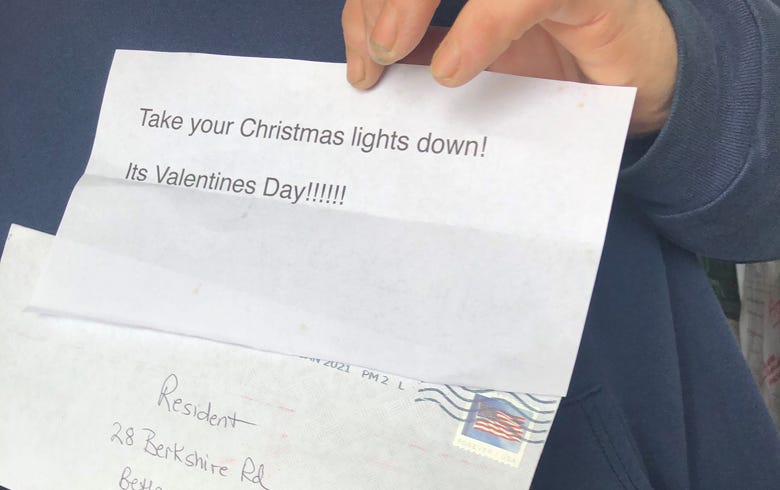 Take your Christmas lights down!
Its Valentines Day!!!!!!
2021 PM 2 L
FOREVER / USA
Resident
28 Berkshire Rd